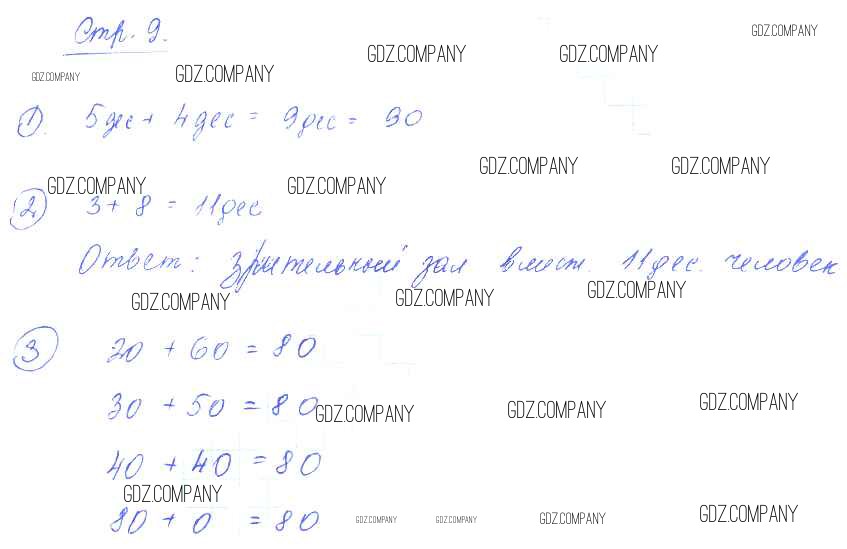 Стр. 9.
GDZ.COMPANY
GDZ.COMPANY GDZ.COMPANY
GDZ.COMPANY GDZ.COMPANY
1). 5дес + 4дес = 9дес = 90
GDZ.COMPANY GDZ.COMPANY
GDZ.COMPANY GDZ.COMPANY
2) 3 + 8 = 11дес
Ответ: зрительный зал вмест. 11дес. человек
GDZ.COMPANY GDZ.COMPANY GDZ.COMPANY
3 20 + 60 = 80
30 + 50 = 80
GDZ.COMPANY GDZ.COMPANY GDZ.COMPANY
40 + 40 = 80
GDZ.COMPANY
80 + 0 = 80
GDZ.COMPANY GDZ.COMPANY GDZ.COMPANY GDZ.COMPANY